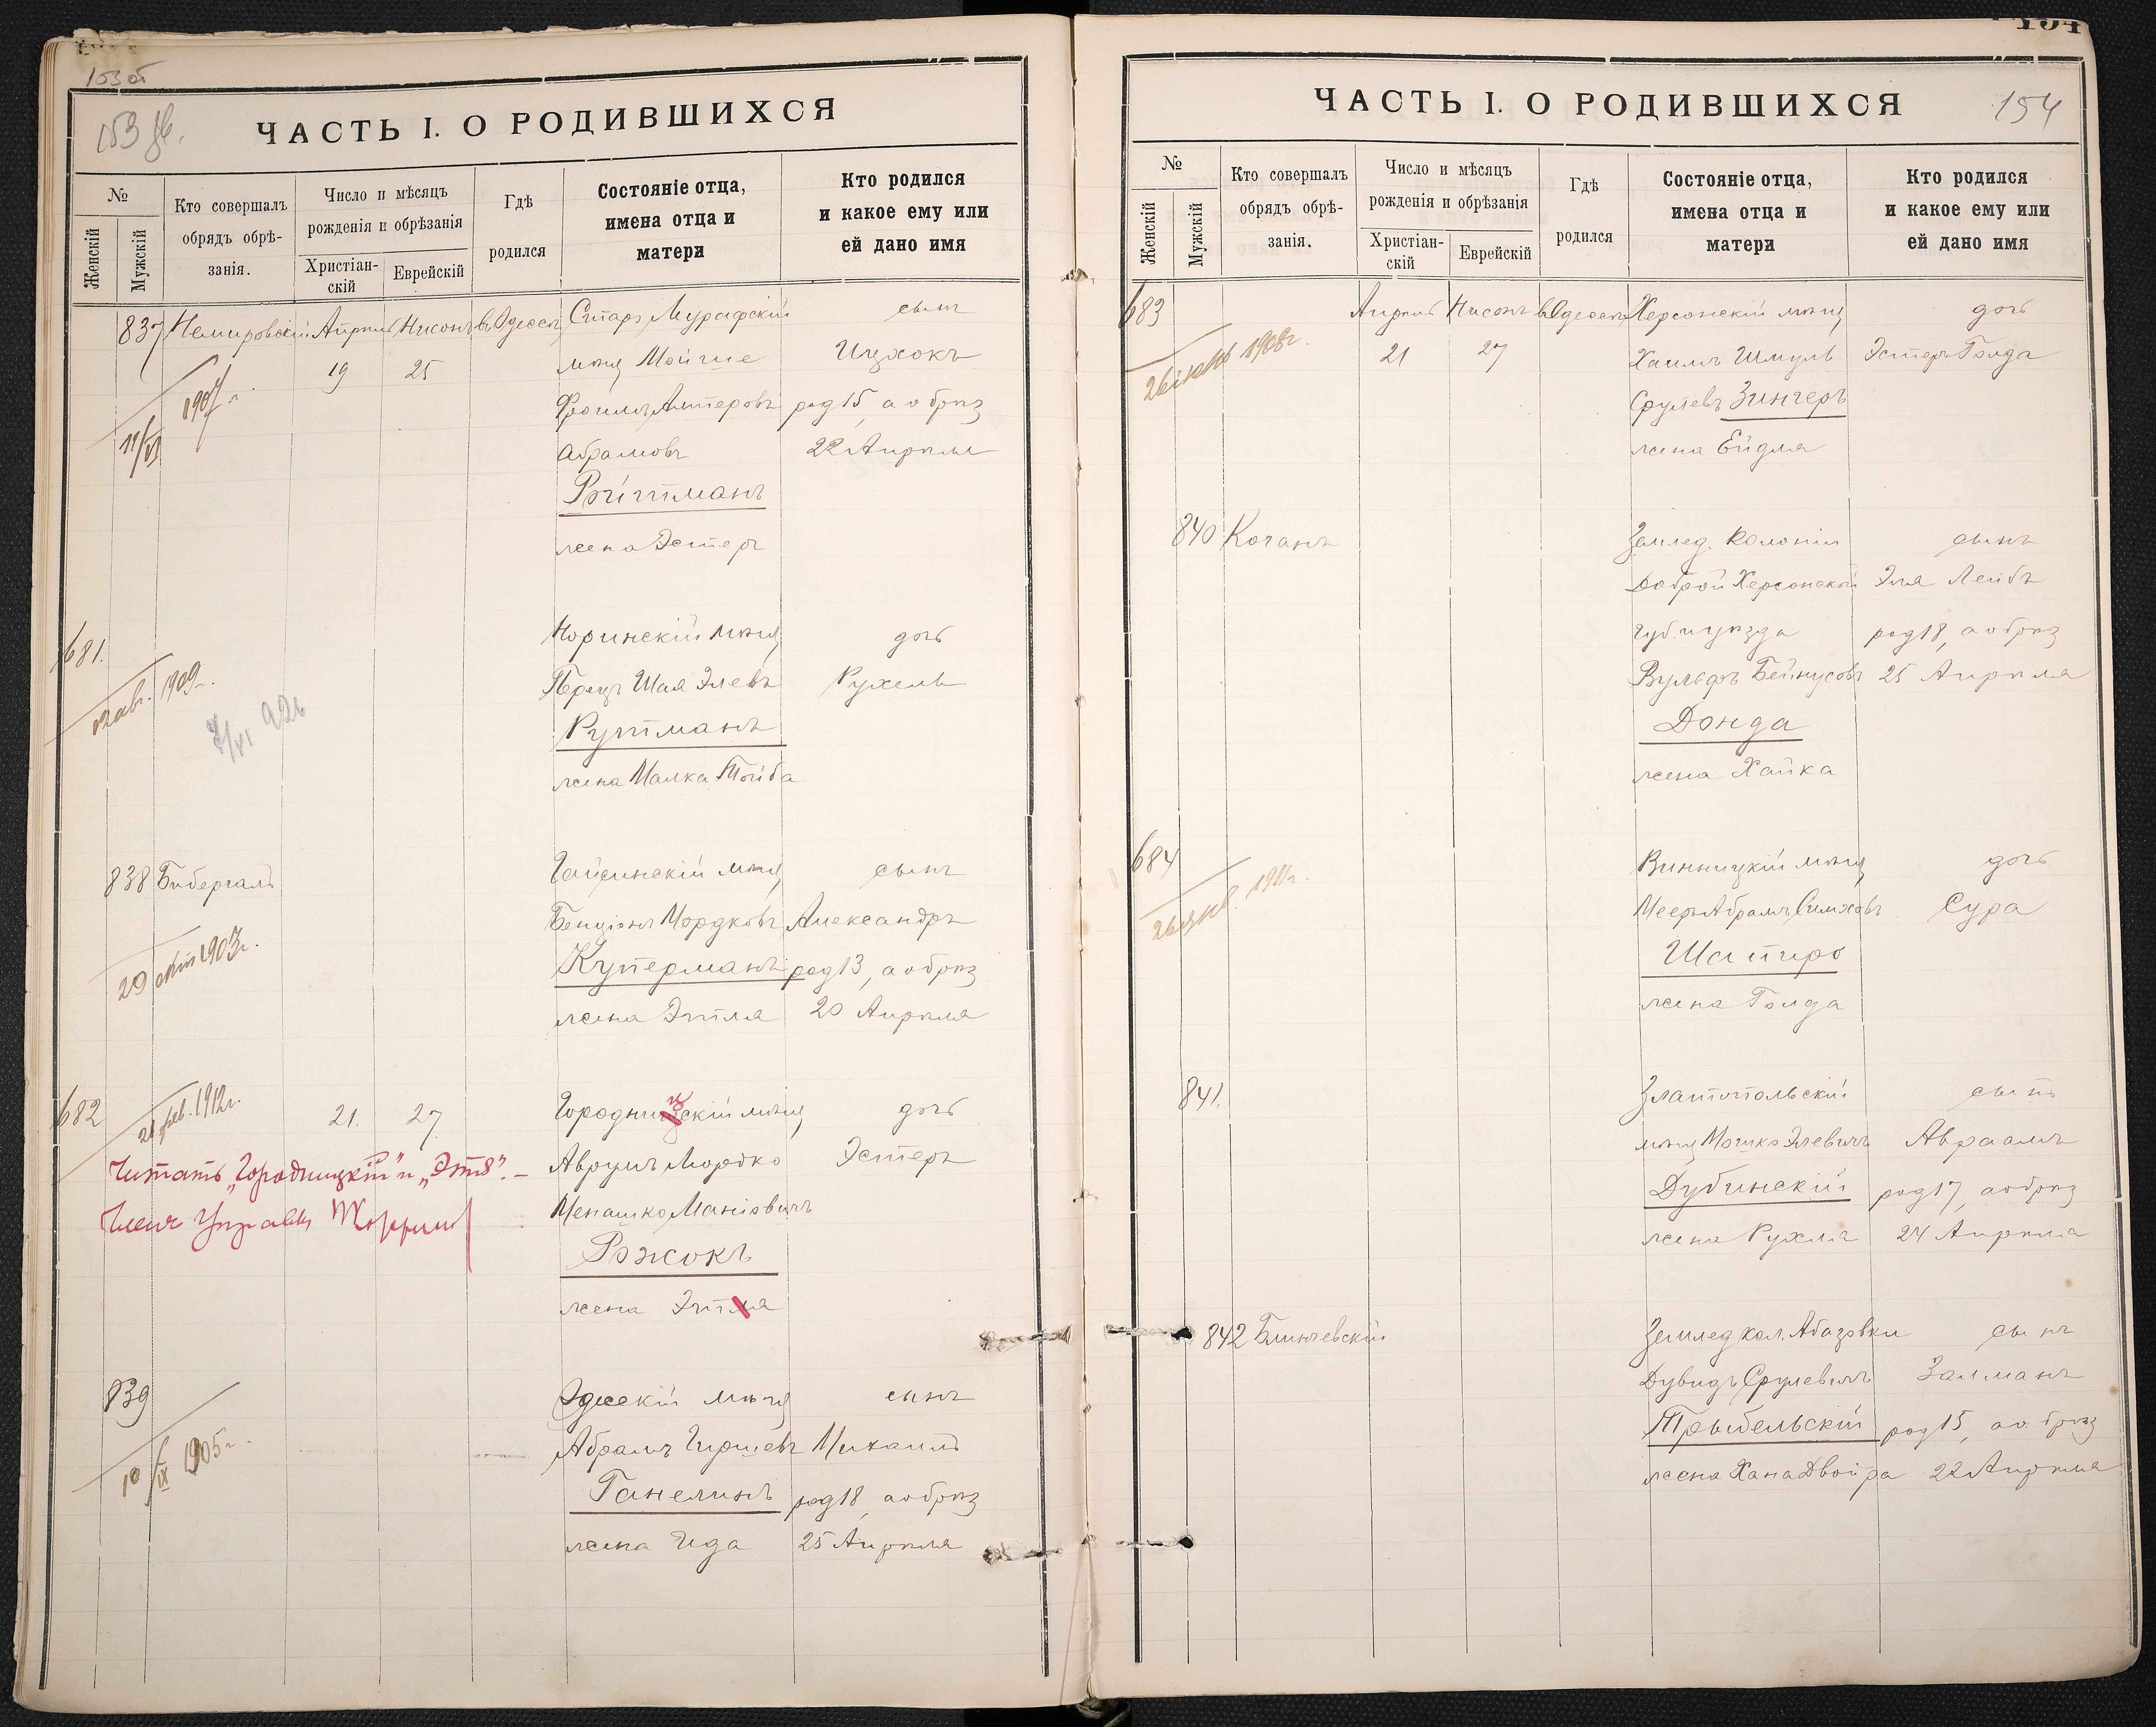 153 об
153 об.
ЧАСТЬ I. О РОДИВШИХСЯ
№
Женскій
Мужскій
Кто совершалъ
обрядъ обрѣ-
занія.
Число и мѣсяцъ
рожденія и обрѣзанія
Христіан-
скій
Еврейскій
Гдѣ
родился
Состояніе отца,
имена отца и
матери
Кто родился
и какое ему или
ей дано имя
837 Немировскій Апрѣль Нисонъ въ Одессѣ Старо Мурафскій сынъ
19 25 мѣщ Мойше Ицхокъ
1907 г. Фроимъ Алтеровъ род 15, а обрѣз
11/VI Абрамовъ 22 Апрѣля
Ройтманъ
жена Эстеръ
681. Норинскій мѣщ дочь
12 авг. 1909 г. Перецъ Шая Элевъ Рухель
Рутманъ
жена Малка Тойба
838 Биберталъ Гайсинскій мѣщ сынъ
Бенціонъ Мордковъ Александръ
29 окт 1903 г. Куперманъ род 13, а обрѣз
жена Этля 20 Апрѣля
682 21 фев. 1912 г. 21. 27 Городницкій мѣщ дочь
Читать „Городницкій" и „Этя". – Аврумъ Мордко Эстеръ
Членъ Управы
Менашко Маніовичъ
Рожокъ
жена Этля
839 Одесскій мѣщ сынъ
10/IX 1905 г. Абрамъ Гершевъ Михаилъ
Ганелинъ род 18, а обрѣз
жена Ида 25 Апрѣля
154
ЧАСТЬ I. О РОДИВШИХСЯ
154
№
Женскій
Мужскій
Кто совершалъ
обрядъ обрѣ-
занія.
Число и мѣсяцъ
рожденія и обрѣзанія
Христіан-
скій
Еврейскій
Гдѣ
родился
Состояніе отца,
имена отца и
матери
Кто родился
и какое ему или
ей дано имя
683 Апрѣль Нисонъ въ Одессѣ Херсонскій мѣщ дочь
1908 г. 21 27 Хаимъ Шмуль Эстеръ Голда
Срулевъ Зингеръ
жена Ейдля
840 Коганъ Землед. колоніи сынъ
Доброй Херсонской Эля Лейбъ
губ. и уѣзда род 18, а обрѣз
Вульфъ Бейнусовъ 25 Апрѣля
Донда
жена Хайка
684 Винницкій мѣщ дочь
1911 г. Мееръ Абрамъ Симховъ Сура
Шапиро
жена Голда
841. Златопольскій сынъ
мѣщ Мошко Элевичъ Авраамъ
Дубинскій род 17, а обрѣз
жена Рухля 24 Апрѣля
842 Блинчевскій Землед кол. Абазовки сынъ
Дувидъ Срулевичъ Залманъ
Трыбельскій род 15, а обрѣз
жена Хана Двойра 22 Апрѣля